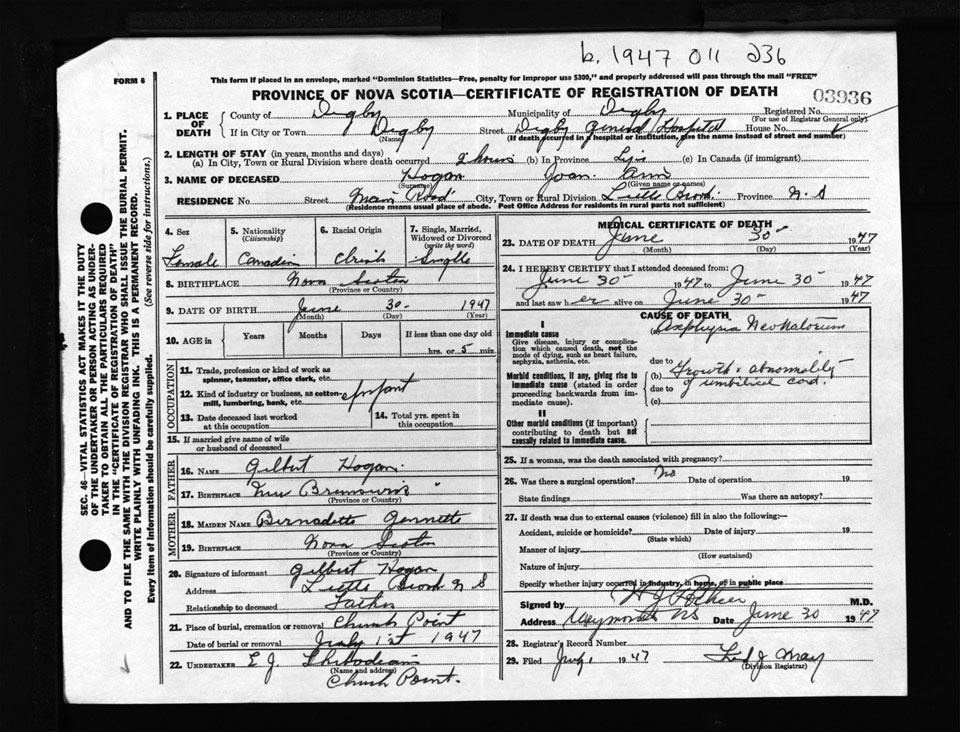 b. 1947 011 236
FORM 6
This form if placed in an envelope, marked "Dominion Statistics—Free, penalty for improper use $300," and properly addressed will pass through the mail "FREE"
PROVINCE OF NOVA SCOTIA—CERTIFICATE OF REGISTRATION OF DEATH
03936
1. PLACE OF DEATH
County of Digby Municipality of Digby Registered No.
(For use of Registrar General only)
If in City or Town Digby Street Digby General Hospital House No.
(Name) (If death occurred in a hospital or institution, give the name instead of street and number)
2. LENGTH OF STAY (in years, months and days)
(a) In City, Town or Rural Division where death occurred 2 hours (b) In Province Life (c) In Canada (if immigrant)
3. NAME OF DECEASED Hogan Joan Ann
(Surname) (Given name or names)
RESIDENCE No. Street Main Road City, Town or Rural Division Little Brook Province N.S
(Residence means usual place of abode. Post Office Address for residents in rural parts not sufficient)
4. Sex
Female
5. Nationality
(Citizenship)
Canadian
6. Racial Origin
7. Single, Married, Widowed or Divorced
(write the word)
Single
8. BIRTHPLACE Nova Scotia
(Province or Country)
9. DATE OF BIRTH June 30 1947
(Month) (Day) (Year)
10. AGE in Years Months Days If less than one day old
hrs. or 5 min.
OCCUPATION
11. Trade, profession or kind of work as
spinner, teamster, office clerk, etc.
12. Kind of industry or business, as cotton-
mill, lumbering, bank, etc. Infant
13. Date deceased last worked
at this occupation
14. Total yrs. spent in
this occupation
15. If married give name of wife
or husband of deceased
FATHER
16. NAME Gilbert Hogan
17. BIRTHPLACE New Brunswick
(Province or Country)
MOTHER
18. MAIDEN NAME Bernadette
19. BIRTHPLACE Nova Scotia
(Province or Country)
20. Signature of informant Gilbert Hogan
Address Little Brook N S
Relationship to deceased Father
21. Place of burial, cremation or removal Church Point
Date of burial or removal July 1st 1947
22. UNDERTAKER E J. Thibodeau
(Name and address)
Church Point.
MEDICAL CERTIFICATE OF DEATH
23. DATE OF DEATH June 30 1947
(Month) (Day) (Year)
24. I HEREBY CERTIFY that I attended deceased from:
June 30 1947 to June 30 1947
and last saw her alive on June 30 1947
CAUSE OF DEATH
I
Immediate cause
Give disease, injury or complication which caused death, not the mode of dying, such as heart failure, asphyxia, asthenia, etc.
(a) Asphyxia Neonatorum
due to
Morbid conditions, if any, giving rise to immediate cause (stated in order proceeding backwards from immediate cause).
(b) Growth & abnormality
due to of umbilical cord.
(c)
II
Other morbid conditions (if important) contributing to death but not causally related to immediate cause.
25. If a woman, was the death associated with pregnancy?
26. Was there a surgical operation? No Date of operation 19
State findings Was there an autopsy?
27. If death was due to external causes (violence) fill in also the following:—
Accident, suicide or homicide? Date of injury 19
(State which)
Manner of injury
(How sustained)
Nature of injury
Specify whether injury occurred in industry, in home, or in public place
Signed by M.D.
Address Weymouth NS Date June 30 1947
28. Registrar's Record Number
29. Filed July 1 1947
(Division Registrar)
SEC. 46—VITAL STATISTICS ACT MAKES IT THE DUTY
OF THE UNDERTAKER OR PERSON ACTING AS UNDER-
TAKER TO OBTAIN ALL THE PARTICULARS REQUIRED
IN THE "CERTIFICATE OF REGISTRATION OF DEATH"
AND TO FILE THE SAME WITH THE DIVISION REGISTRAR WHO SHALL ISSUE THE BURIAL PERMIT.
WRITE PLAINLY WITH UNFADING INK. THIS IS A PERMANENT RECORD.
Every item of information should be carefully supplied. (See reverse side for instructions.)